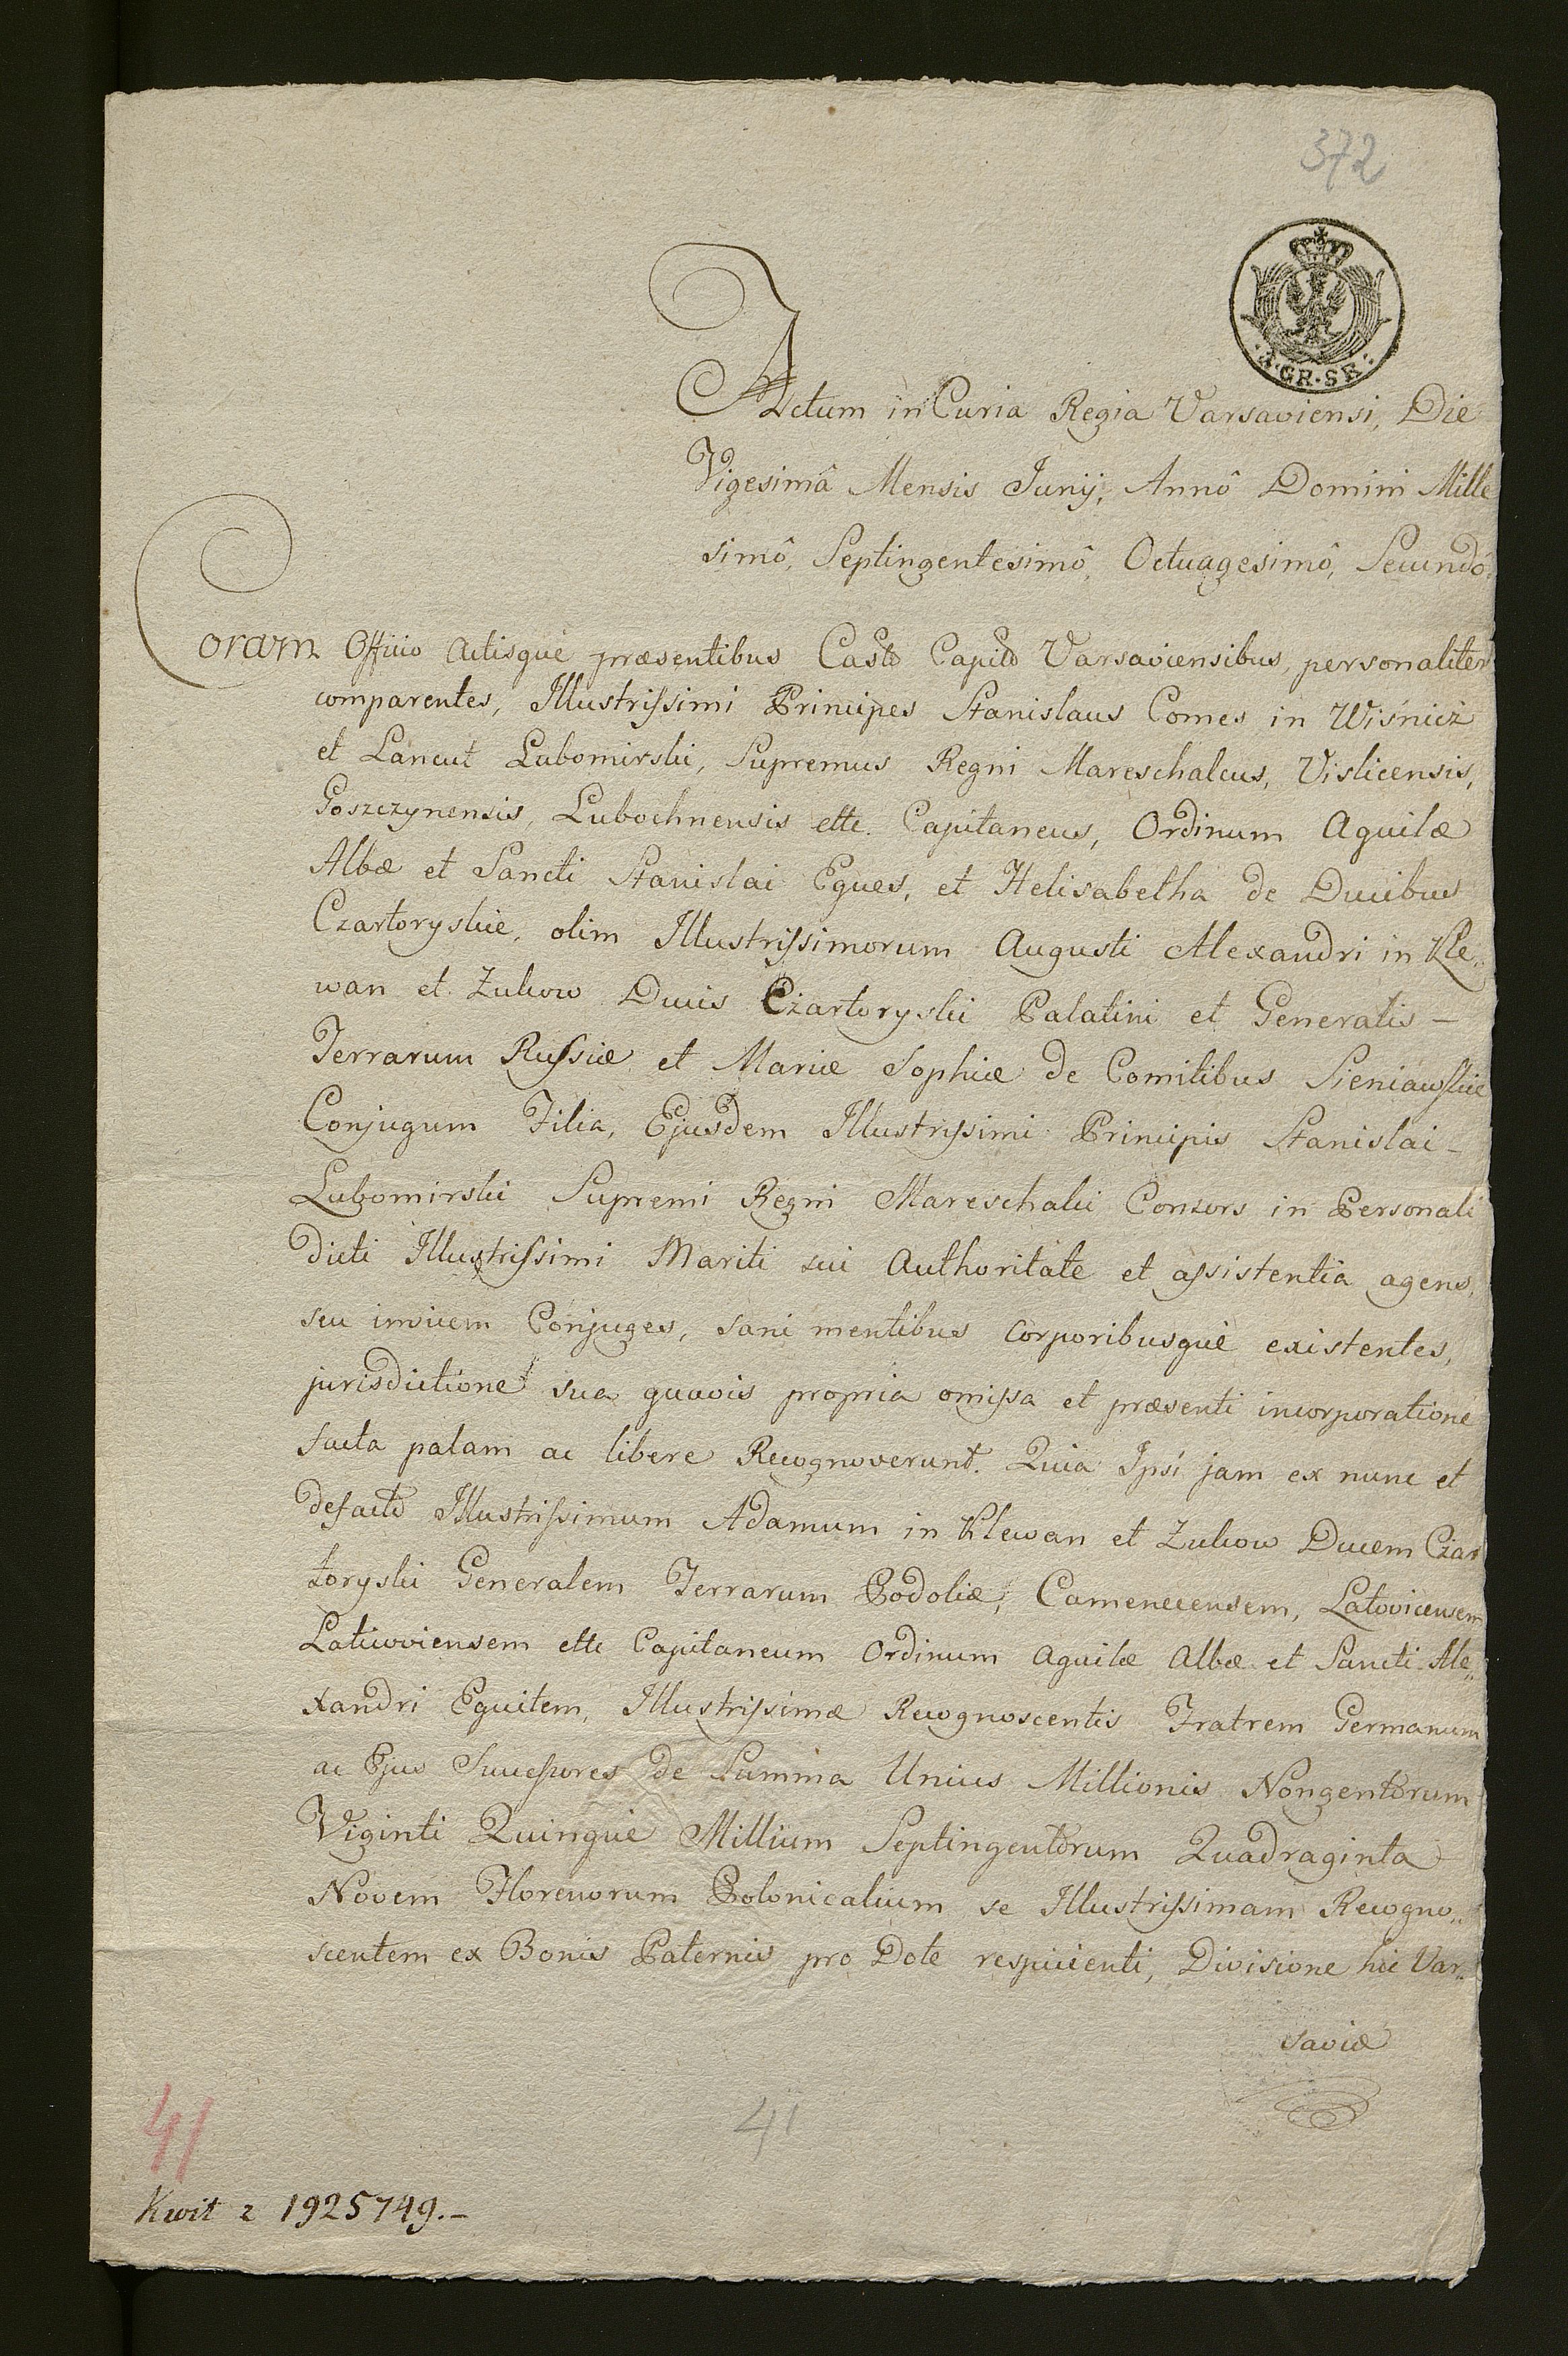 372
·4·GR·SR·
Actum in Curia Regia Varsaviensi, Die
Vigesimâ Mensis Junij, Annô Domini Mille
simô, Septingentesimô, Octuagesimô, Secundô.
Coram Officio Actisque præsentibus Castô Capitô Varsaviensibus, personaliter
comparentes, Illustrissimi Principes Stanislaus Comes in Wiśnicz
et Lancut Lubomirski, Supremus Regni Mareschalcus, Vislicensis,
Goszczynensis, Lubochnensis ettc. Capitaneus, Ordinum Aquilæ
Albæ et Sancti Stanislai Eques, et Helisabetha de Ducibus
Czartoryskie, olim Illustrissimorum Augusti Alexandri in Kle„
wan et Zukow Ducis Czartoryski Palatini et Generalis –
Terrarum Russiæ et Mariæ Sophiæ de Comitibus Sieniawskie
Conjugum Filia, Ejusdem Illustrissimi Principis Stanislai –
Lubomirski Supremi Regni Mareschalci Consors in Personali
dicti Illustrissimi Mariti sui Authoritate et assistentia agens,
seu invicem Conjuges, sani mentibus corporibusque existentes,
jurisdictione sua quavis propria omissa et præsenti incorporatione
facta palam ac libere Recognoverunt. Quia Ipsi jam ex nunc et
defactô Illustrissimum Adamum in Klewan et Zukow Ducem Czar
toryski Generalem Terrarum Podoliæ, Camenecensem, Latovicensem
Laticzoviensem ettc Capitaneum Ordinum Aquilæ Albæ et Sancti Ale„
xandri Equitem, Illustrissimæ Recognoscentis Fratrem Germanum
ac Ejus Successores de Summa Unius Millionis Nongentorum
Viginti Quinque Millium Septingentorum Quadraginta
Novem Florenorum Polonicalium se Illustrissimam Recogno„
scentem ex Bonis Paternis pro Dote respicienti, Divisione hic Var„
saviæ
41
41
Kwit z 1925749.–